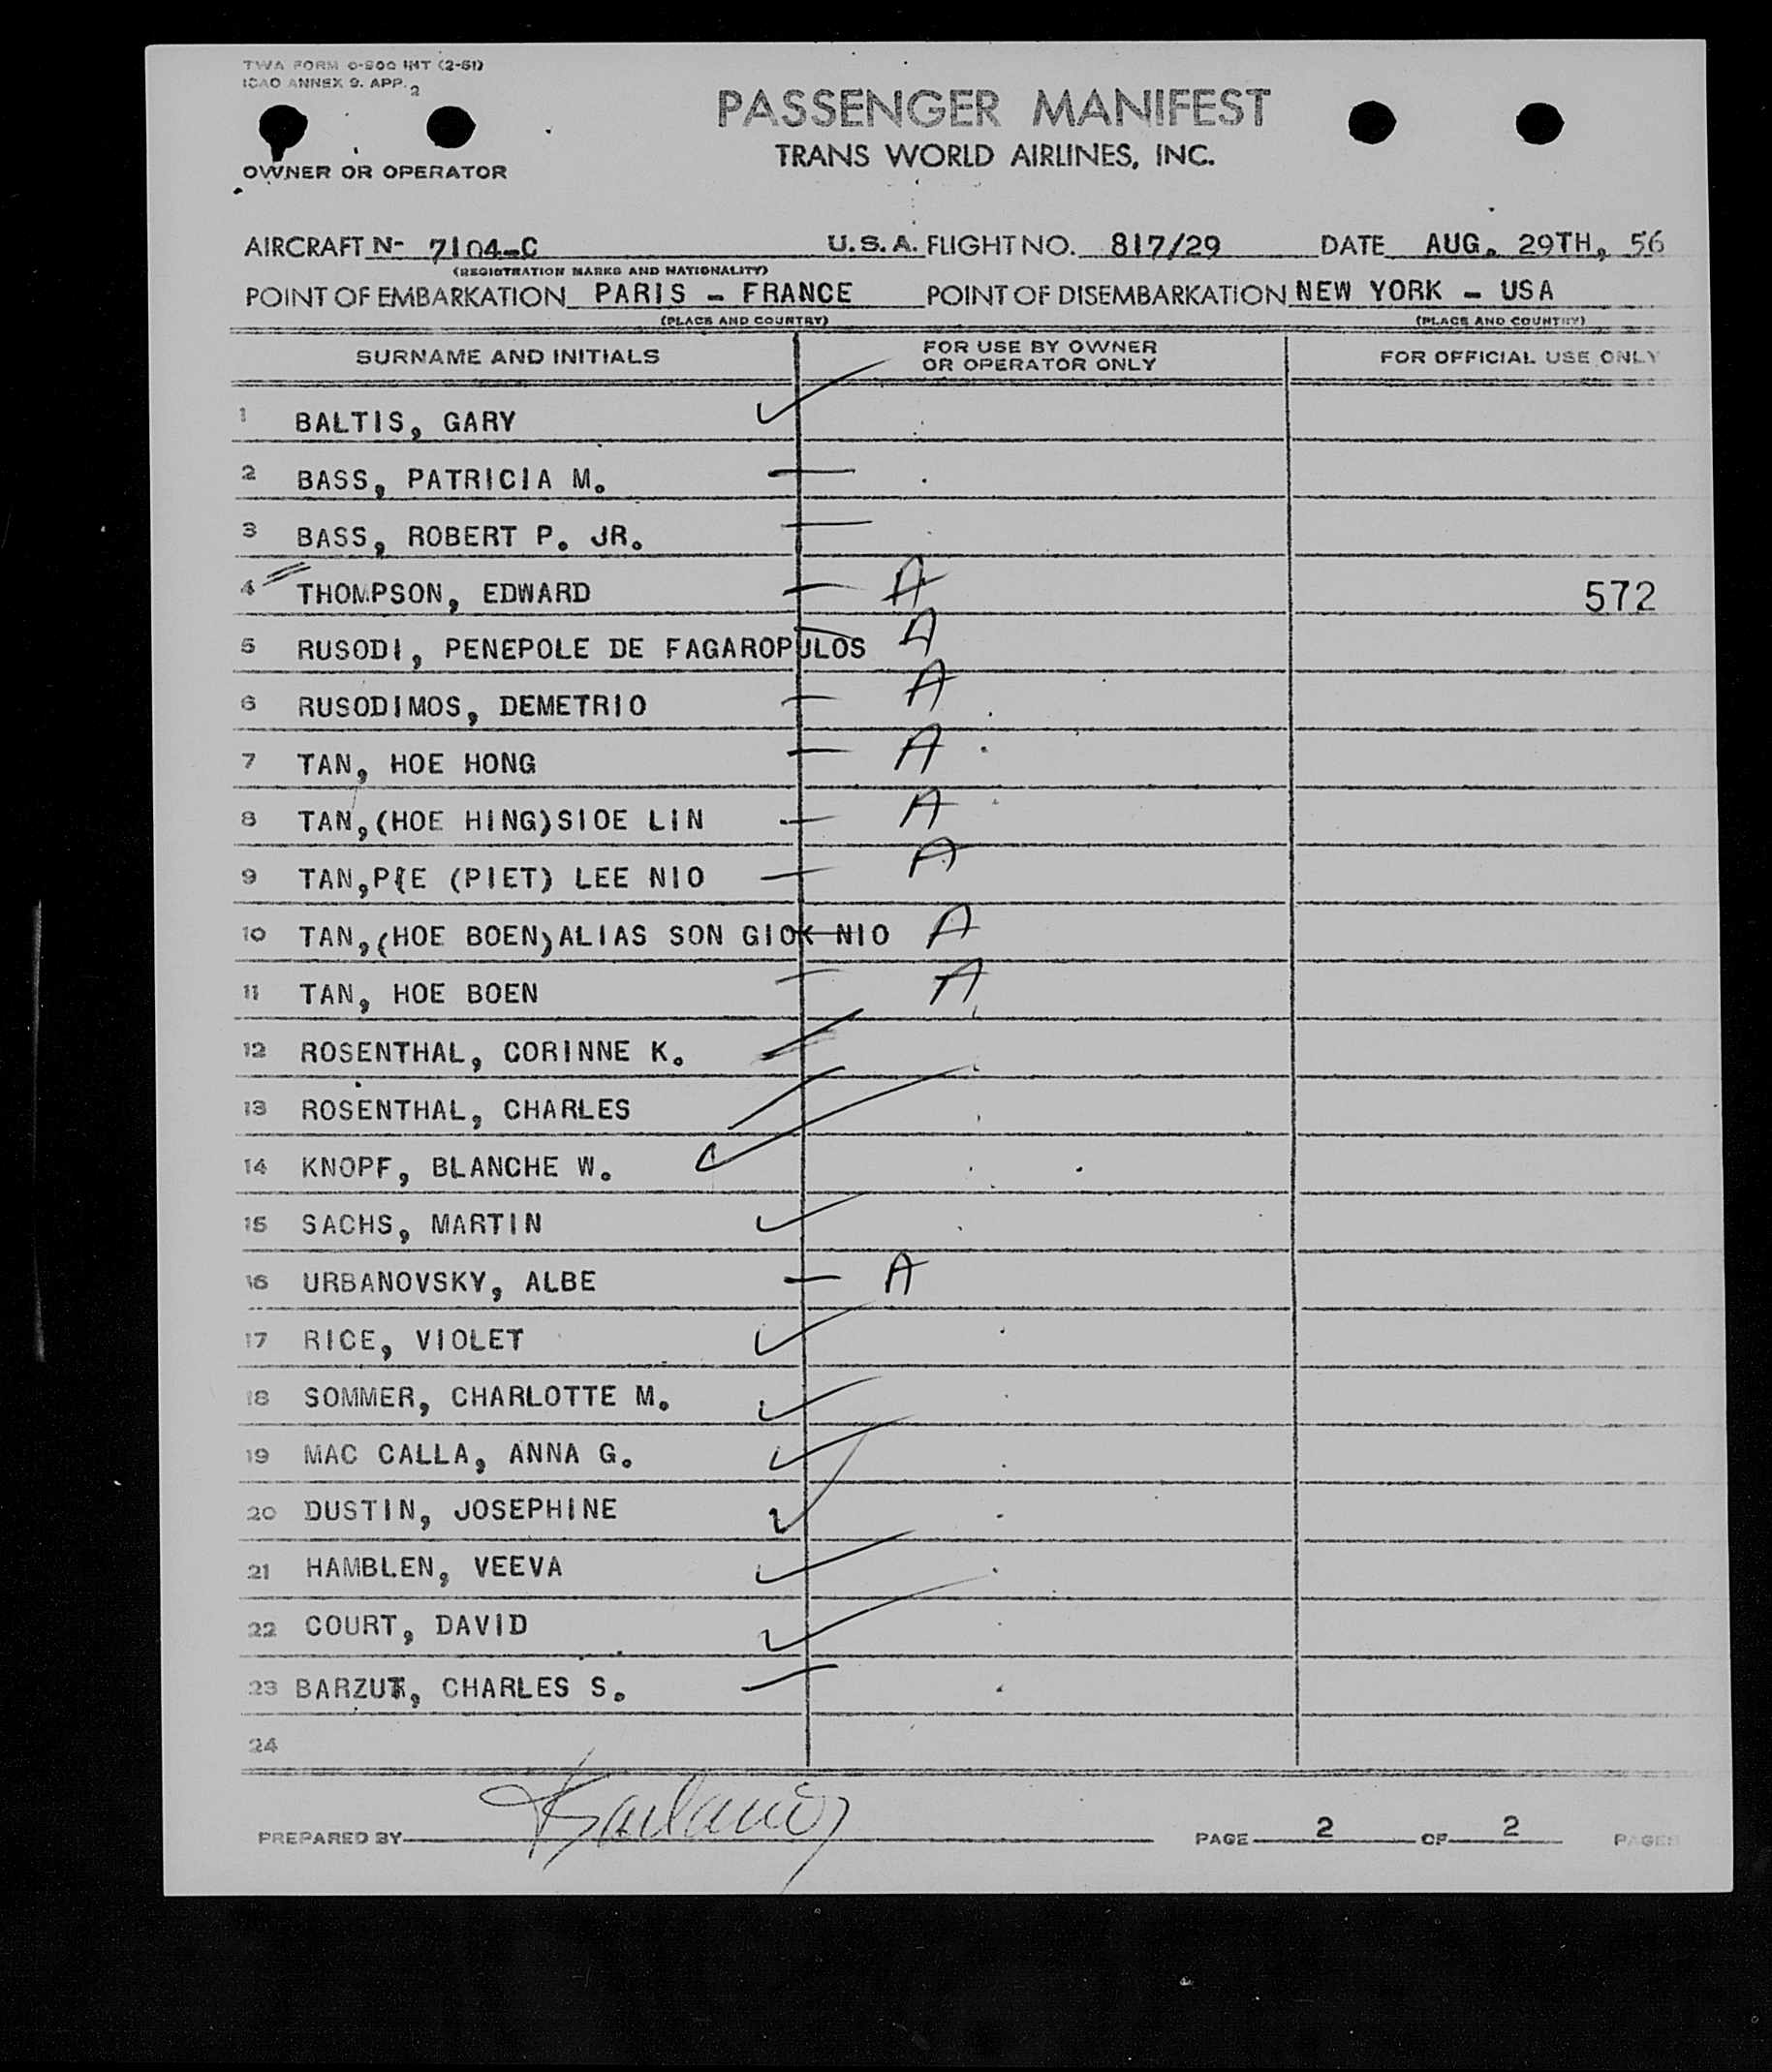 TWA FORM O-800 INT (2-51)
ICAO ANNEX 9. APP. 2
PASSENGER MANIFEST
TRANS WORLD AIRLINES, INC.
OWNER OR OPERATOR
AIRCRAFT N- 7104-C U.S.A. FLIGHT NO. 817/29 DATE AUG. 29TH, 56
(REGISTRATION MARKS AND NATIONALITY)
POINT OF EMBARKATION PARIS - FRANCE POINT OF DISEMBARKATION NEW YORK - USA
(PLACE AND COUNTRY) (PLACE AND COUNTRY)
SURNAME AND INITIALS FOR USE BY OWNER OR OPERATOR ONLY FOR OFFICIAL USE ONLY
1 BALTIS, GARY
2 BASS, PATRICIA M.
3 BASS, ROBERT P. JR.
4 THOMPSON, EDWARD A 572
5 RUSODI, PENEPOLE DE FAGAROPULOS A
6 RUSODIMOS, DEMETRIO A
7 TAN, HOE HONG A
8 TAN,(HOE HING)SIOE LIN A
9 TAN,PIE (PIET) LEE NIO A
10 TAN,(HOE BOEN)ALIAS SON GIOK NIO A
11 TAN, HOE BOEN A
12 ROSENTHAL, CORINNE K.
13 ROSENTHAL, CHARLES
14 KNOPF, BLANCHE W.
15 SACHS, MARTIN
16 URBANOVSKY, ALBE A
17 RICE, VIOLET
18 SOMMER, CHARLOTTE M.
19 MAC CALLA, ANNA G.
20 DUSTIN, JOSEPHINE
21 HAMBLEN, VEEVA
22 COURT, DAVID
23 CHARLES S.
24
PREPARED BY PAGE 2 OF 2 PAGES